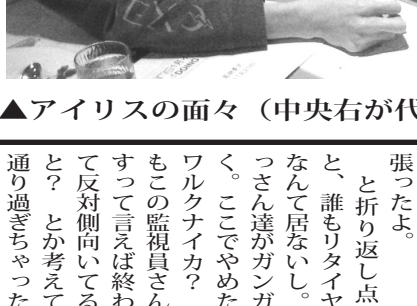 ▲アイリスの面々（中央右が代
張ったよ。
と折り返し点
と、誰もリタイヤ
なんて居ないし。
っさん達がガンガ
く。ここでやめた
ワルクナイカ？
もこの監視員さん
すって言えば終わ
て反対側向いてる
と？　とか考えて
通り過ぎちゃった